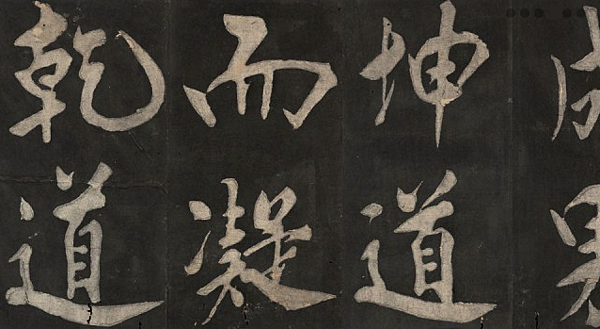 坤道
而凝
乾道